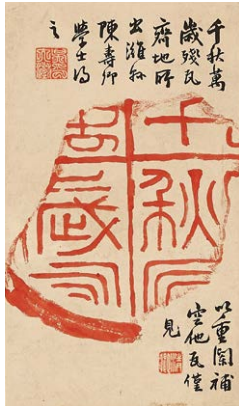 千秋萬
歲殘瓦
齊地所
出濰縣
陳壽卿
學士得
之
千秋
萬歲
以重闌補
空他瓦僅
見